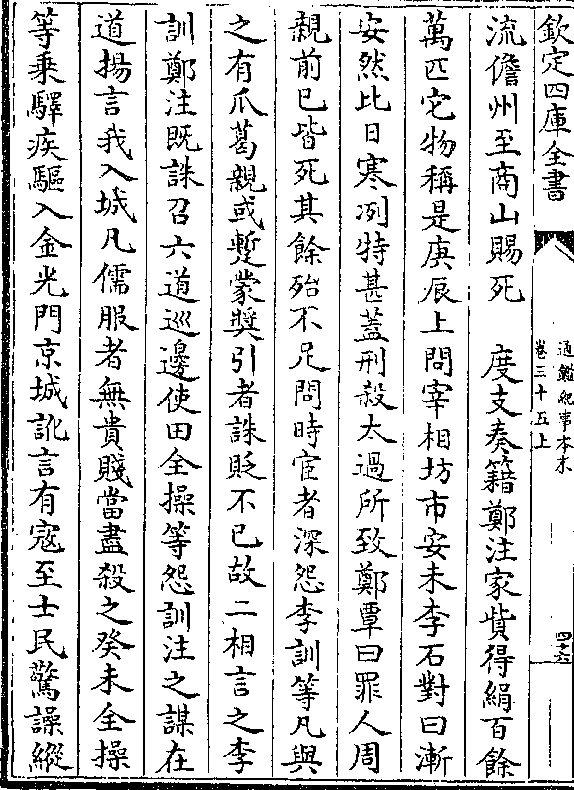 欽定四庫全書
通鑑紀事本末
卷三十五上
四十六
流儋州至商山賜死　度支奏籍鄭注家貲得絹百餘
萬匹它物稱是庚辰上問宰相坊市安未李石對曰漸
安然比日寒冽特甚蓋刑殺太過所致鄭覃曰罪人周
親前已皆死其餘殆不足問時宦者深怨李訓等凡與
之有瓜葛親或蹔蒙奬引者誅貶不已故二相言之李
訓鄭注既誅召六道巡邊使田全操等怨訓注之謀在
道揚言我入城凡儒服者無貴賤當盡殺之癸未全操
等乗驛疾驅入金光門京城訛言有寇至士民驚譟縱